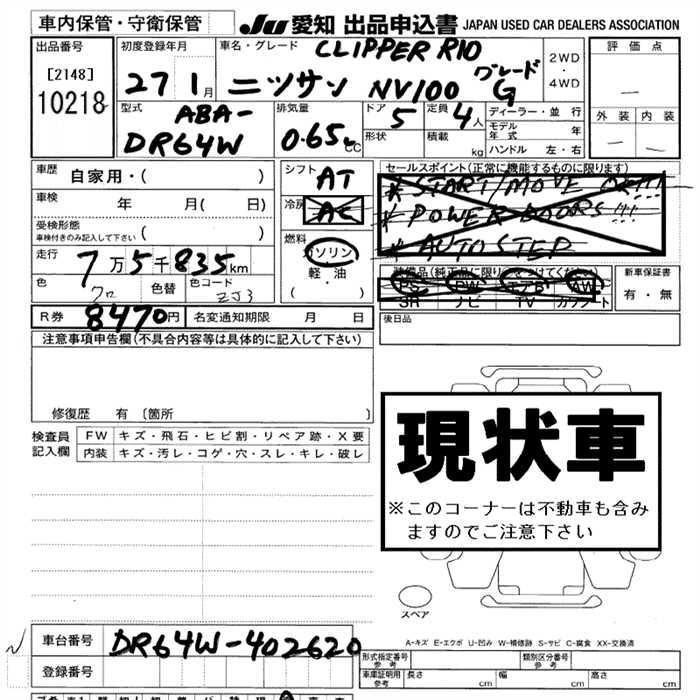 車内保管・守衛保管
JU 愛知 出品申込書 JAPAN USED CAR DEALERS ASSOCIATION
出品番号
[2148]
10218
初度登録年月
27 1月
車名・グレード CLIPPER RIO
ニツサン NV100 グレード G
2WD
・
4WD
評価点
—
外装 内装
— —
型式 ABA-
DR64W
排気量
0.65L CC
ドア 5
形状
定員 4人
積載 kg
ディーラー・並行
モデル年式 年
ハンドル 左・右
車歴 自家用・( )
車検 年 月( 日)
受検形態
車検付きのみ記入して下さい ( )
走行 7万5千835km
色 クロ 色替 色コード ZJ3
R券 8470円 名変通知期限 月 日
シフト AT
冷房 AC
燃料
ガソリン
軽・油
( )
セールスポイント(正常に機能するものに限ります)
* START/MOVE OK!!!
* POWER DOORS!!!
* AUTO STEP
装備品(純正品に限り○をつけてください)
PS PW エアB AW
SR ナビ TV カワシート
新車保証書
有・無
後日品
注意事項申告欄(不具合内容等は具体的に記入して下さい)
修復歴 有 [箇所 ]
検査員記入欄
FW キズ・飛石・ヒビ割・リペア跡・X要
内装 キズ・汚レ・コゲ・穴・スレ・キレ・破レ
現状車
※このコーナーは不動車も含みますのでご注意下さい
スペア
A-キズ E-エクボ U-凹み W-補修跡 S-サビ C-腐食 XX-交換済
車台番号 DR64W-402620
登録番号
形式指定番号 参考
類別区分番号 参考
車庫証明用 参考 長さ cm 幅 cm 高さ cm